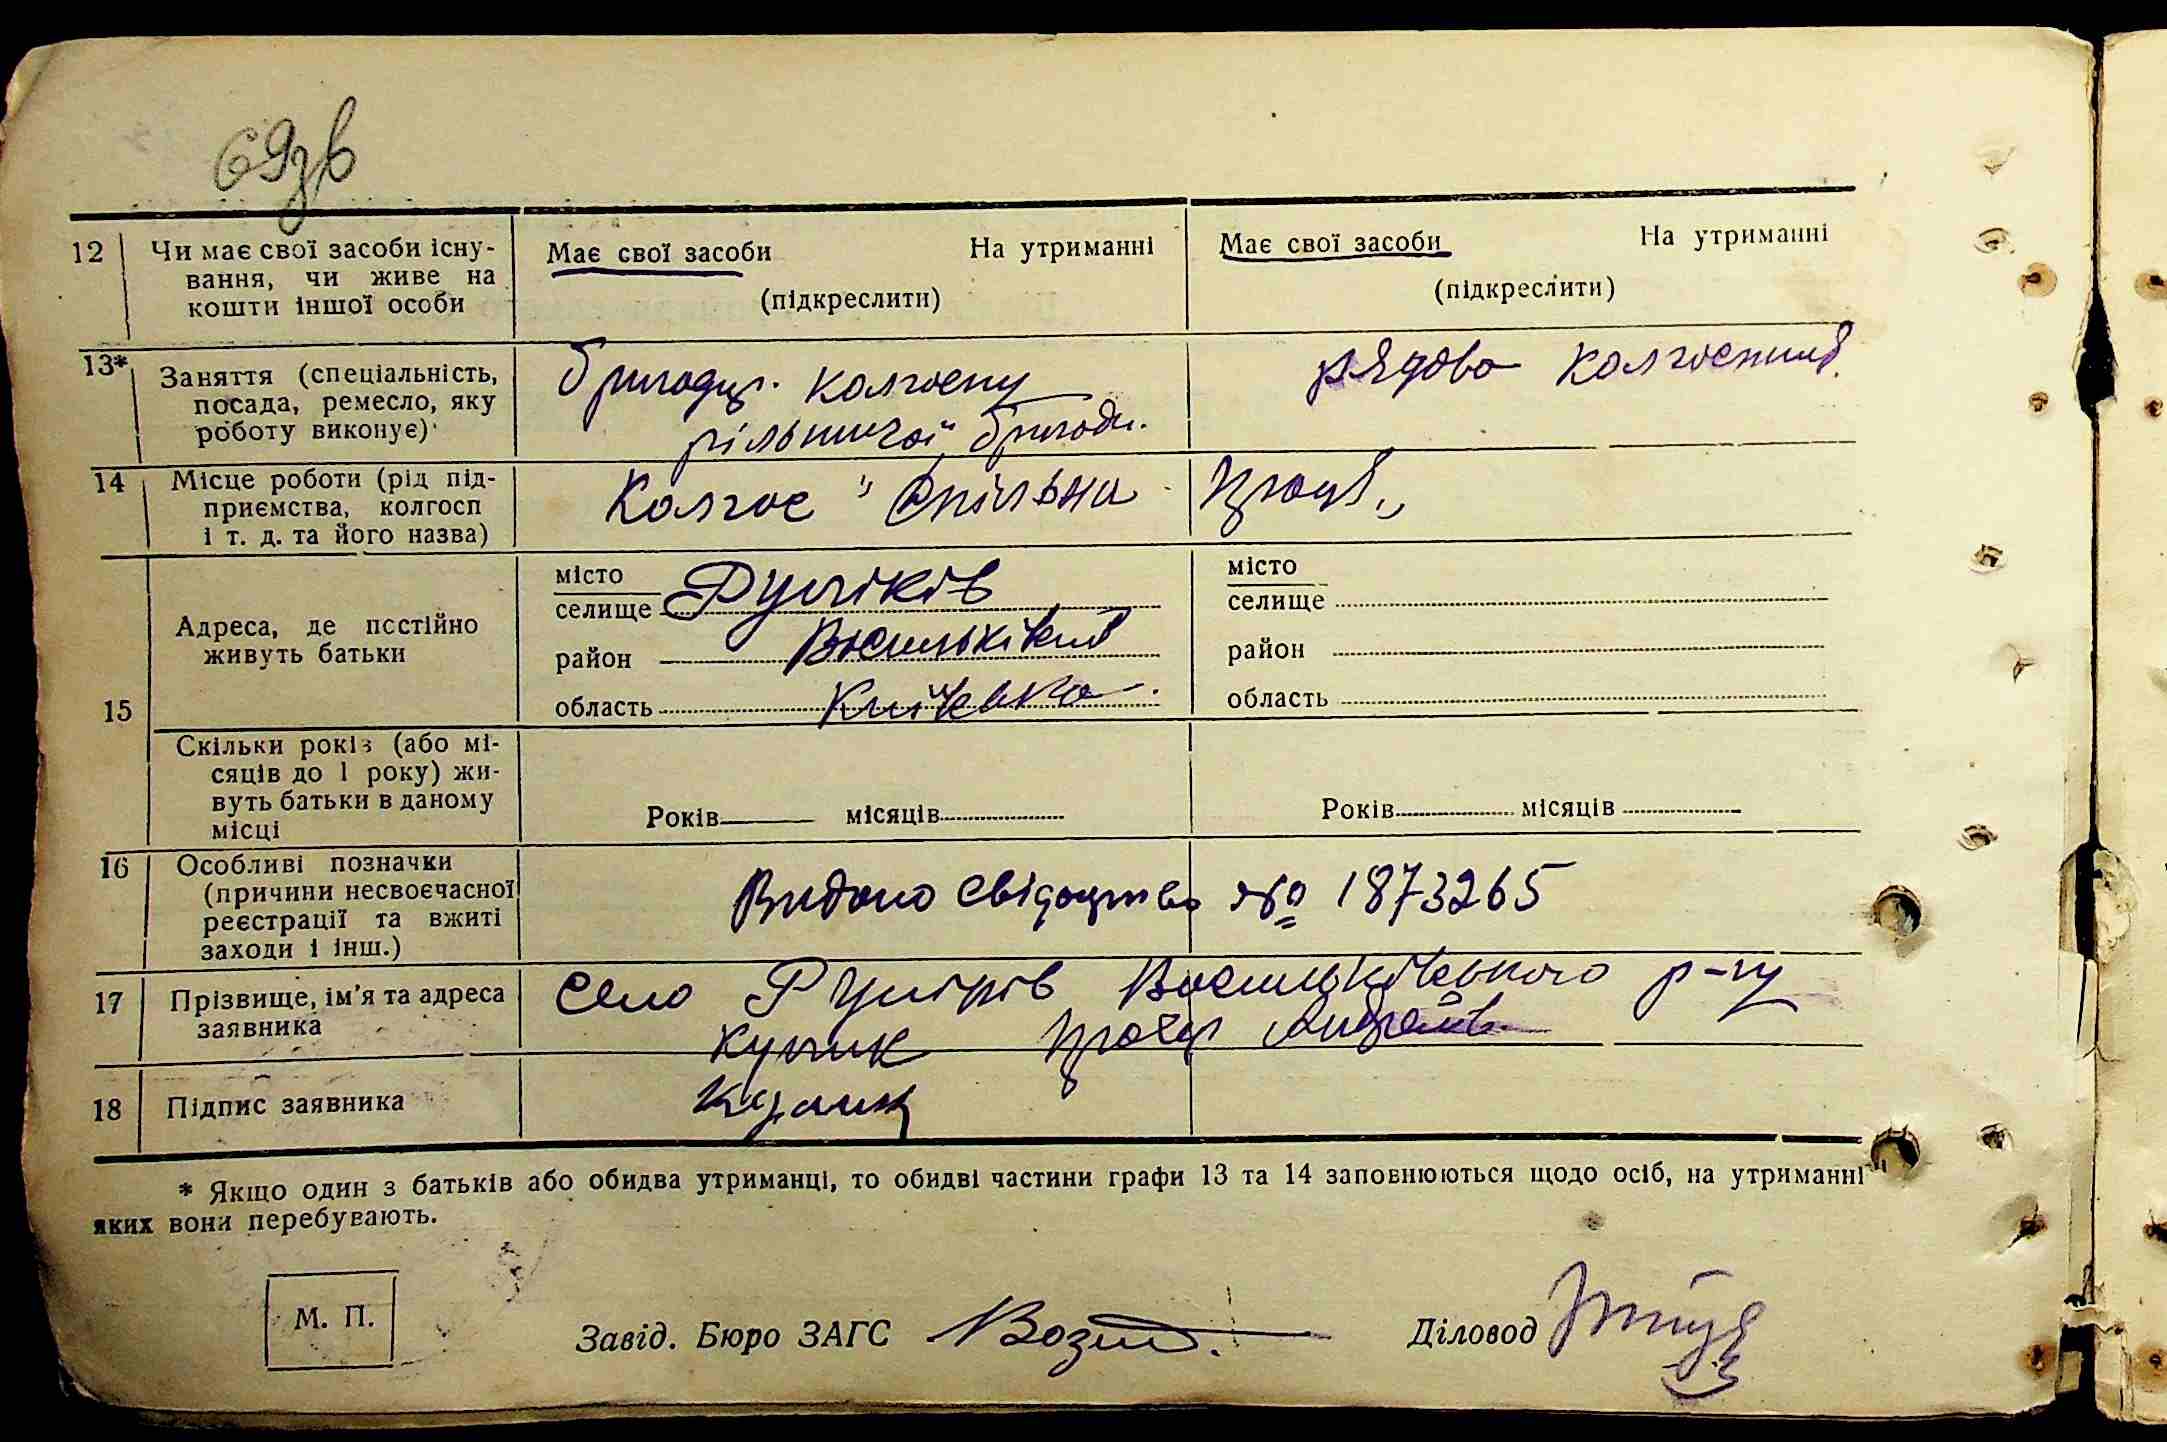 69зв
12 Чи має свої засоби існу- Має свої засоби На утриманні Має свої засоби На утриманні
вання, чи живе на (підкреслити) (підкреслити)
кошти іншої особи
13* Заняття (спеціальність, колгоспу рядова
посада, ремесло, яку рільничої
роботу виконує)
14 Місце роботи (рід під- Колгос "Спільна праця"
приємства, колгосп
і т. д. та його назва)
15 Адреса, де постійно
живуть батьки
місто
селище
район
область Київська
місто
селище
район
область
Скільки років (або мі-
сяців до 1 року) жи-
вуть батьки в даному
місці
Років місяців Років місяців
16 Особливі позначки
(причини несвоєчасної
реєстрації та вжиті
заходи і інш.)
Видано свідоцтво № 1873265
17 Прізвище, ім'я та адреса село Васильківського р-ну
заявника
18 Підпис заявника
* Якщо один з батьків або обидва утриманці, то обидві частини графи 13 та 14 заповнюються щодо осіб, на утриманні
яких вони перебувають.
М. П.
Завід. Бюро ЗАГС Діловод